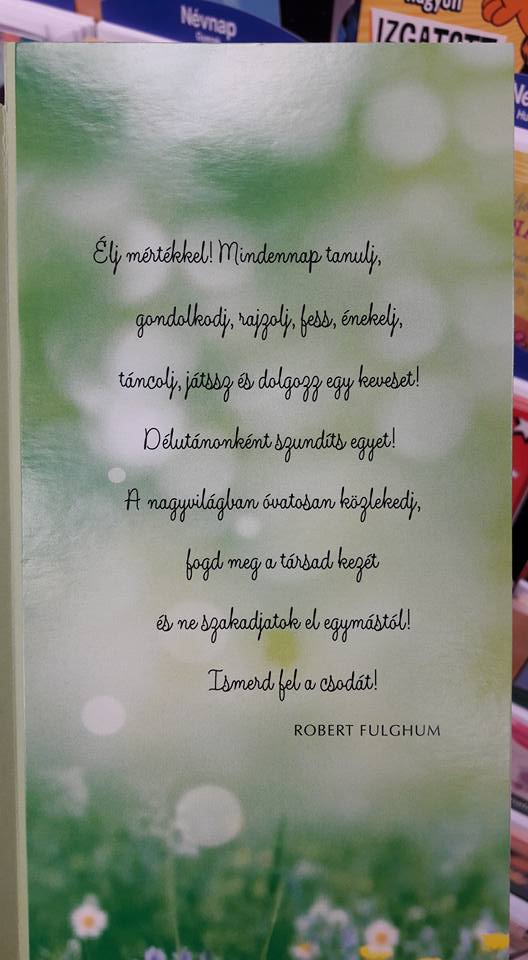 Névnap
nagyon
IZGATOTT
Élj mértékkel! Mindennap tanulj,
gondolkodj, rajzolj, fess, énekelj,
táncolj, játssz és dolgozz egy keveset!
Délutánonként szundíts egyet!
A nagyvilágban óvatosan közlekedj,
fogd meg a társad kezét
és ne szakadjatok el egymástól!
Ismerd fel a csodát!
ROBERT FULGHUM